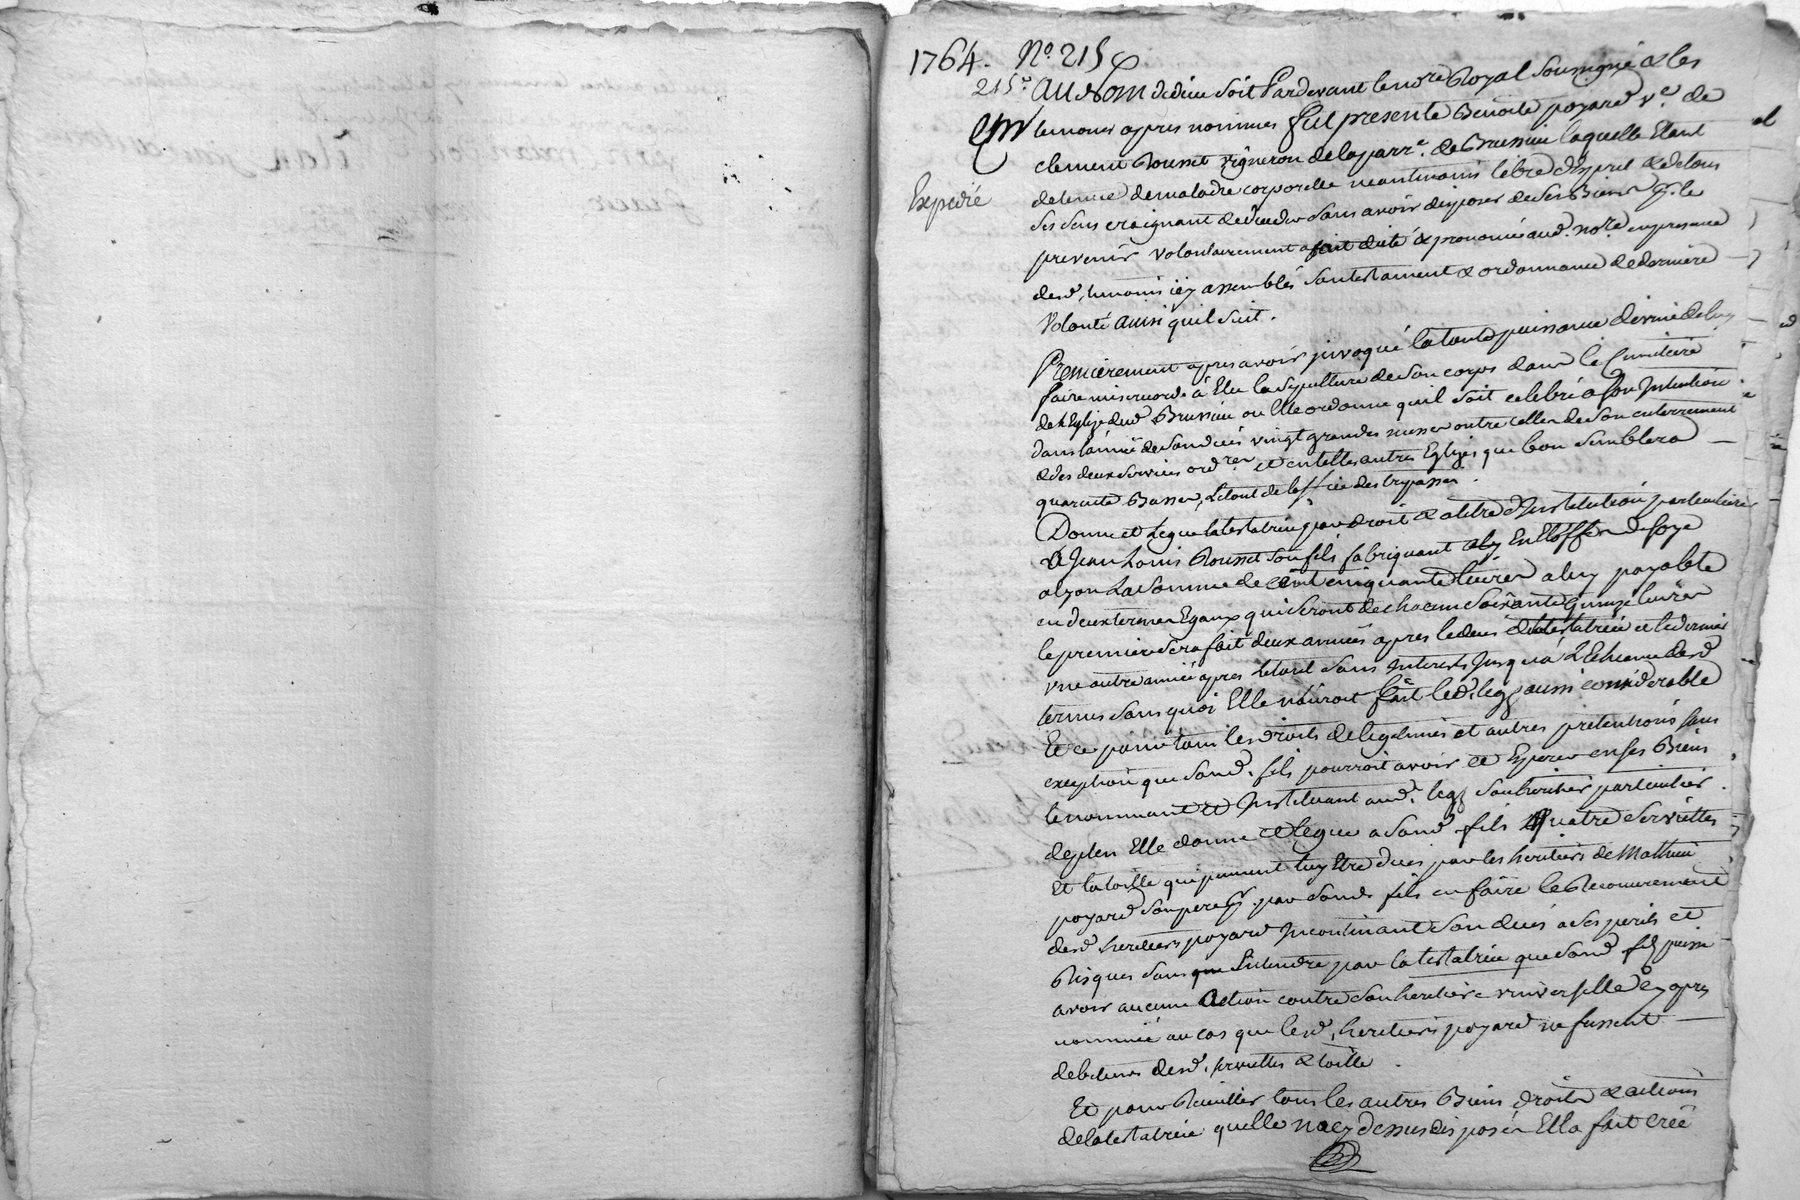 1764. No 215
215e Au Nom de dieu soit Pardevant le nore Royal soussigné & les
temoins apres nommes fut presente Benoite poyard ve. de
clement Rousset vigneron de la parre. de Brussieu laquelle Etant
Expedié
detenue de maladie corporelle neantmoins libre d'Esprit & de tous
ses sens craignant de deceder sans avoir disposer de ses Biens p. le
prevenir volontairement a fait dicté & prononcé aud. nore. en presence
desd. temoins icy assemblés son testament & ordonnance de derniere
Volonté ainsi quil suit.
Premierement apres avoir jnvoqué la toute puissance divine de luy
faire misericorde à Elu la sepulture de son corps dans le Cimitiere
de l'Eglize dud Brussieu ou Elle ordonne quil soit celebré a son Intention
dans l'année de son decés vingt grandes messes outre celles de son enterrement
& des deux services ordres et en telles autres Eglizes que bon semblera
quarante Basses, le tout de l'office des trepassés.
Donne et Legue la testatrice par droit & a titre d'Institution particuliere
a Jean Louis Rousset son fils fabriquant en Etoffes de soye
a lyon La somme de cent cinquante livres a luy payable
en deux termes Egaux qui seront de chacun soixante quinze livres
le premier sera fait deux années apres le deces de la testatrice et le dernier
une autre année apres le tout sans Interets Jusqu'a L'Echeance desd
termes sans quoi Elle n'auroit fait led. legs aussi considerable
Et ce pour tous les droits de legitimes et autres pretentions sans
exception que sond. fils pourroit avoir et Esperer en ses Biens
le nommant et Instituant aud. legs son heritier particulier.
de plus Elle donne et legue a sond fils quatre serviettes
Et la toille qui peuvent luy Etre dues par les heritiers de Mathieu
poyard son pere p. par sond fils en faire le Recouvrement
desd heritiers poyard Incontinant son decés a ses perils et
Risques sans que Entendre par la testatrice que sond fils puisse
avoir aucune Action contre son heritiere universelle cy apres
nommée au cas que lesd. heritiers poyard ne fussent
debiteurs desd. serviettes & toille.
Et pour Recueillir tous les autres Biens droits & actions
de la testatrice quelle n'a cy dessus disposés Ella fait créé